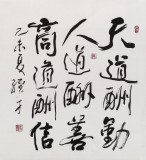 天道酬勤
人道酬善
商道酬信
乙未夏